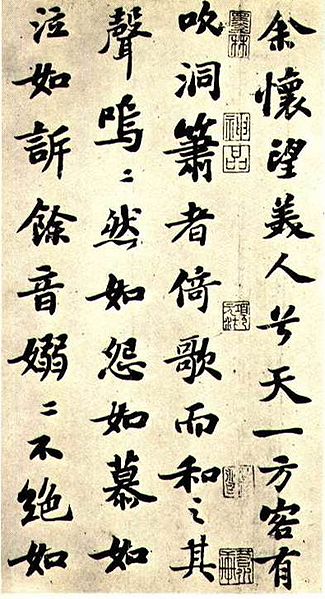 余懷望美人兮天一方客有
吹洞簫者倚歌而和之其
聲嗚〻然如怨如慕如
泣如訴餘音嫋〻不絕如
墨林
神品